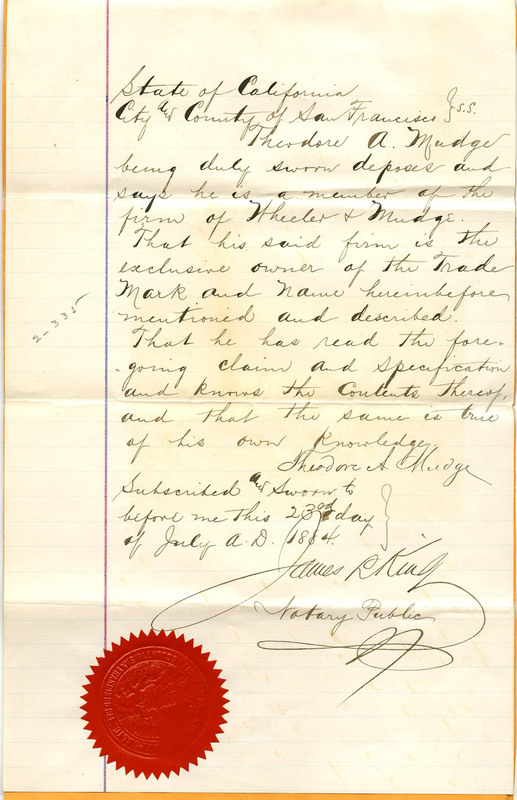 State of California
City and County of San Francisco } S.S.
Theodore A. Mudge
being duly sworn deposes and
says he is a member of the
firm of Wheeler & Mudge.
That his said firm is the
exclusive owner of the Trade
Mark and Name hereinbefore
mentioned and described.
That he has read the fore-
-going claim and specification
and knows the Contents thereof,
and that the same is true
of his own Knowledge.
Theodore A Mudge
Subscribed and Sworn to
before me this 23rd day
of July A.D. 1884.
James L King
Notary Public
2-335